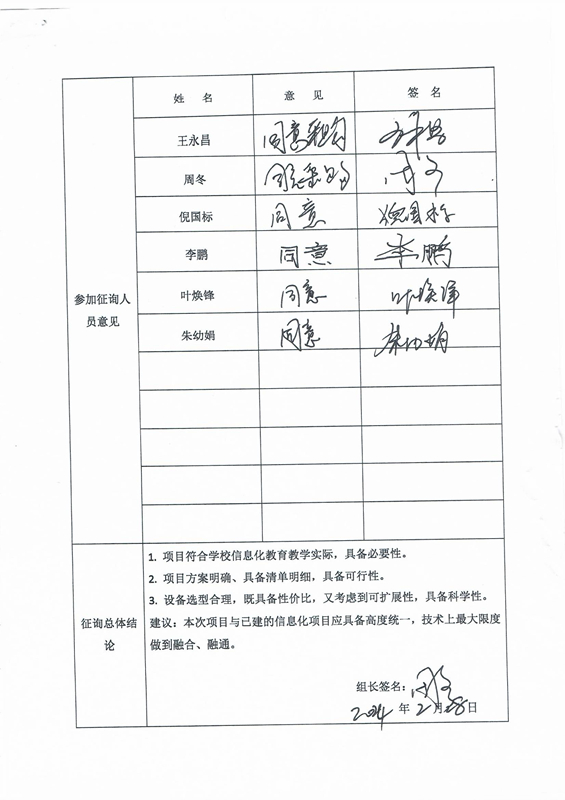 姓 名 意 见 签 名
王永昌 同意
周冬 同意
倪国标 同意 倪国标
李鹏 同意 李鹏
参加征询人
员意见
叶焕锋 同意 叶焕锋
朱幼娟 同意 朱幼娟
1. 项目符合学校信息化教育教学实际，具备必要性。
2. 项目方案明确、具备清单明细，具备可行性。
3. 设备选型合理，既具备性价比，又考虑到可扩展性，具备科学性。
征询总体结
论
建议：本次项目与已建的信息化项目应具备高度统一，技术上最大限度
做到融合、融通。
组长签名：
2024 年 2 月 28 日